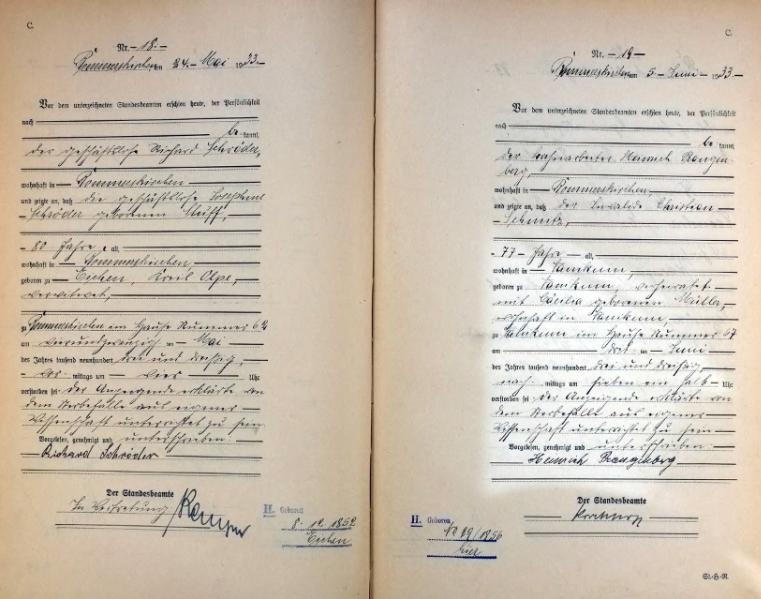 C.
Nr. 18.
Rommerskirchen am 24. Mai 1933
Vor dem unterzeichneten Standesbeamten erschien heute, der Persönlichkeit
nach
be kannt,
der geschäftslose Richard Schröder,
wohnhaft in Rommerskirchen
und zeigte an, daß die geschäftslose Josephine
Schröder geborenen
80 Jahre alt,
wohnhaft in Rommerskirchen,
geboren zu Eichen, Kreis Olpe,
verwitwet,
zu Rommerskirchen im Hause Nummer 62
am vierundzwanzigsten Mai
des Jahres tausend neunhundert drei und dreißig,
vor mittags um vier Uhr
verstorben sei. Der Anzeigende erklärte von
dem Sterbefalle aus eigener
Wissenschaft unterrichtet zu sein.
Vorgelesen, genehmigt und unterschrieben.
Richard Schröder
Der Standesbeamte
In Vertretung
II. Geboren
8. 12. 1852
Eichen
C.
Nr. 19
Rommerskirchen am 5. Juni 1933
Vor dem unterzeichneten Standesbeamten erschien heute, der Persönlichkeit
nach
be kannt,
der Heinrich
berg,
wohnhaft in Rommerskirchen,
und zeigte an, daß der Invalide Christian
Schmitz,
77 Jahre alt,
wohnhaft in Vanikum,
geboren zu Vanikum, verheiratet
mit Cäcilia geborenen
wohnhaft in Vanikum,
zu Vanikum im Hause Nummer 67
am Juni
des Jahres tausend neunhundert drei und dreißig,
nach mittags um sieben ein halb Uhr
verstorben sei. Der Anzeigende erklärte von
dem Sterbefalle aus eigener
Wissenschaft unterrichtet zu sein
Vorgelesen, genehmigt und unterschrieben.
Heinrich
Der Standesbeamte
II. Geboren
/1856
hier
St.-H.-R.